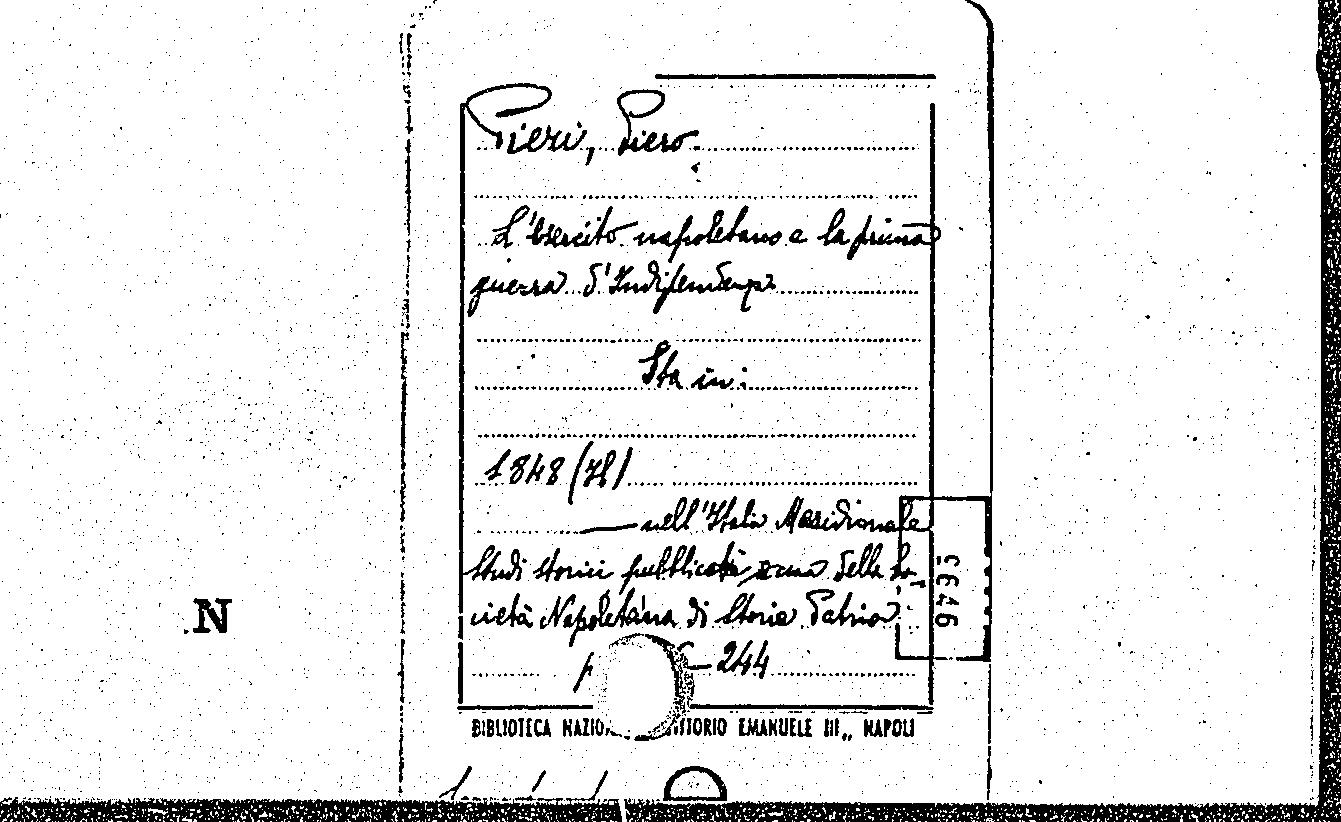 Pieri, Piero.
L'esercito napoletano e la prima
guerra d'Indipendenza
Sta in:
1848 (Il)
— nell'Italia Meridionale
Studi storici pubblicati a cura della So-
cietà Napoletana di Storia Patria
p — 244
BIBLIOTECA NAZIO ITTORIO EMANUELE III„ NAPOLI
N